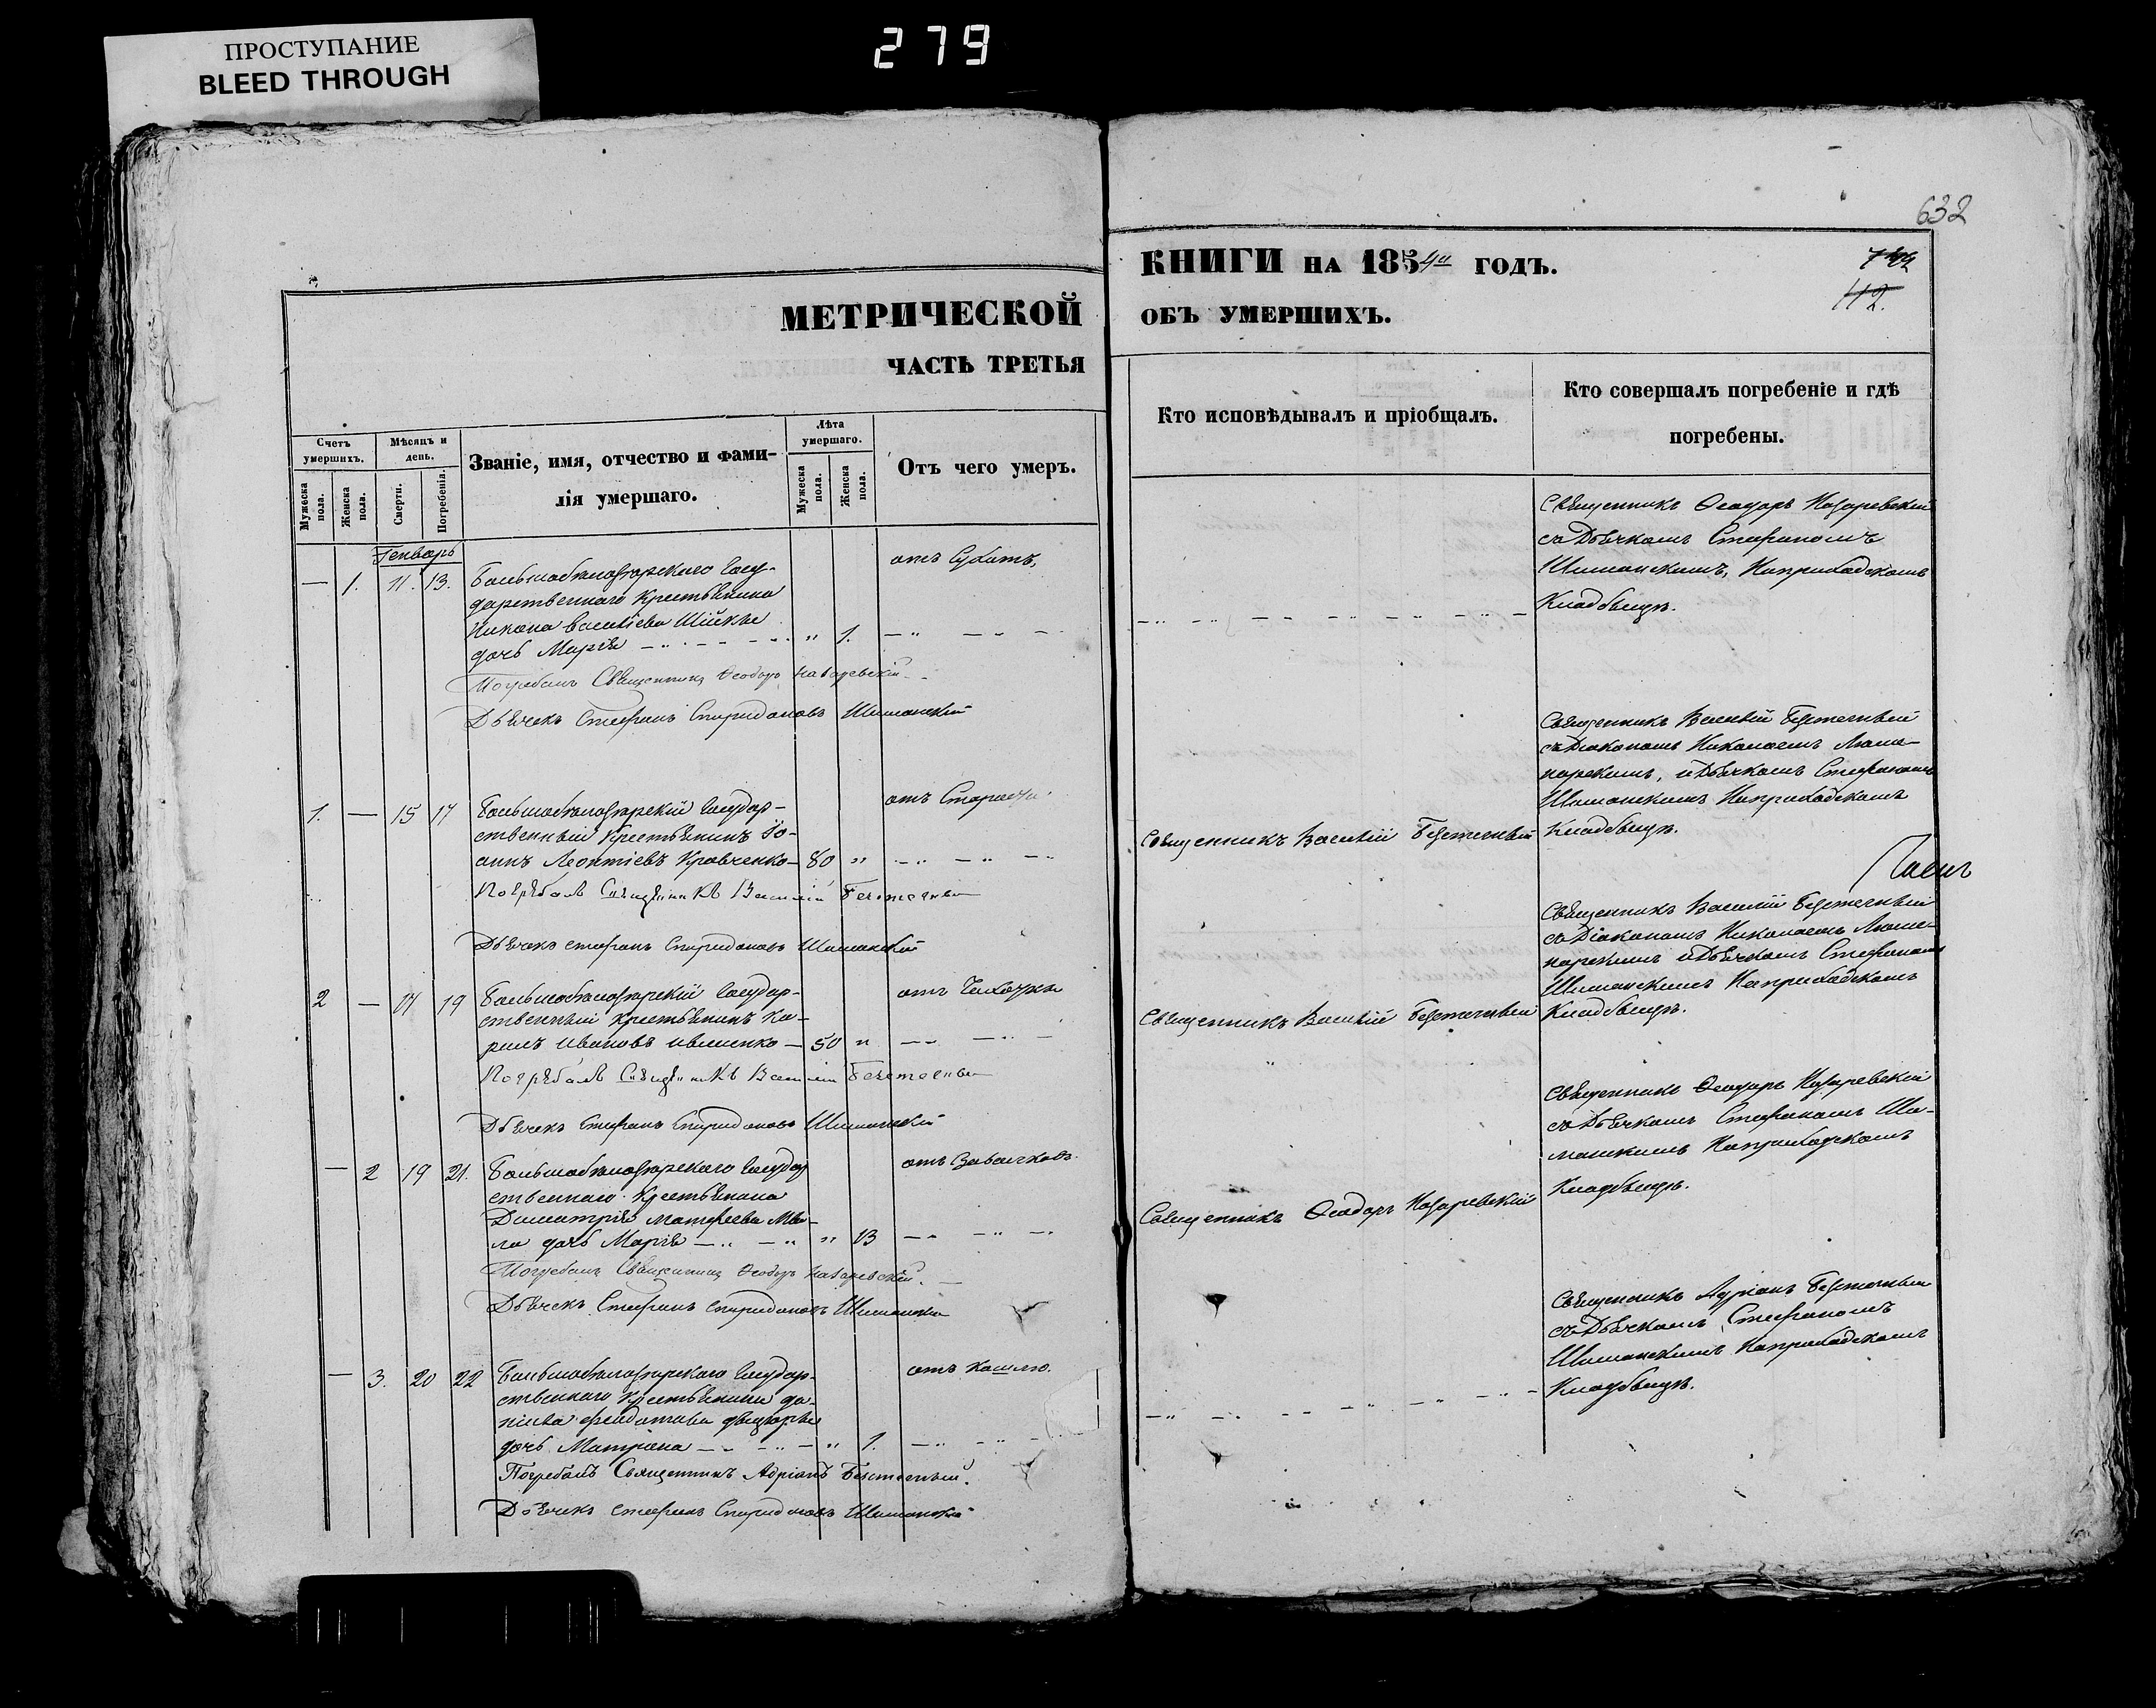 ПРОСТУПАНИЕ
BLEED THROUGH
279
632
МЕТРИЧЕСКОЙ
ЧАСТЬ ТРЕТЬЯ
КНИГИ НА 1854й ГОДЪ.
ОБЪ УМЕРШИХЪ.
112.
Счетъ умершихъ.
Мужеска пола.
Женска пола.
Мѣсяцъ и день.
Смерти.
Погребенія.
Званіе, имя, отчество и фами-
лія умершаго.
Лѣта умершаго.
Мужеска пола.
Женска пола.
Отъ чего умеръ.
Кто исповѣдывалъ и пріобщалъ.
Кто совершалъ погребеніе и гдѣ
погребены.
Генварь
— 1. 11. 13. Большобѣлозарскаго Госу-
дарственнаго Крестьянина
Никона Васильева
дочь Марія " 1.
отъ Сухотъ,
Погребалъ Священникъ Ѳеодоръ Назаревскій
Дьячекъ Стефанъ Спиридоновъ Шиманскій
Священникъ Ѳеодоръ Назаревскій
съ Дьячкомъ Стефаномъ
Шиманскимъ, На приходскомъ
Кладбищѣ.
1. — 15 17 Большобѣлозарскій Государ-
ственный Крестьянинъ Іо-
аннъ Леонтіевъ Кравченко — 80 "
отъ Старости
Погребалъ Священникъ Василій
Дьячекъ Стефанъ Спиридоновъ Шиманскій
Священникъ Василій
Священникъ Василій
съ Діакономъ Николаемъ
и Дьячкомъ Стефаномъ
Шиманскимъ На приходскомъ
Кладбищѣ.
2 — 17 19 Большобѣлозарскій Государ-
ственный Крестьянинъ Ки-
рилъ Ивановъ — 50 "
отъ Чахотки
Погребалъ Священникъ Василій
Дьячекъ Стефанъ Спиридоновъ Шиманскій
Священникъ Василій
Священникъ Василій
съ Діакономъ Николаемъ
и Дьячкомъ Стефаномъ
Шиманскимъ На приходскомъ
Кладбищѣ.
— 2 19 21. Большобѣлозарскаго Государ
ственнаго Крестьянина
Димитрія Матфеева
дочь Марія " 13
отъ
Погребалъ Священникъ Ѳеодоръ Назаревскій.
Дьячекъ Стефанъ Спиридоновъ Шиманскій
Священникъ Ѳеодоръ Назаревскій
Священникъ Ѳеодоръ Назаревскій
съ Дьячкомъ Стефаномъ Ши-
манскимъ На приходскомъ
Кладбищѣ.
— 3. 20 22 Большобѣлозарскаго Государ-
ственнаго Крестьянина Да-
дочь Матрона " 1.
отъ Кашлю.
Погребалъ Священникъ Адріанъ
Дьячекъ Стефанъ Спиридоновъ Шиманскій
Священникъ Адріанъ
съ Дьячкомъ Стефаномъ
Шиманскимъ На приходскомъ
Кладбищѣ.